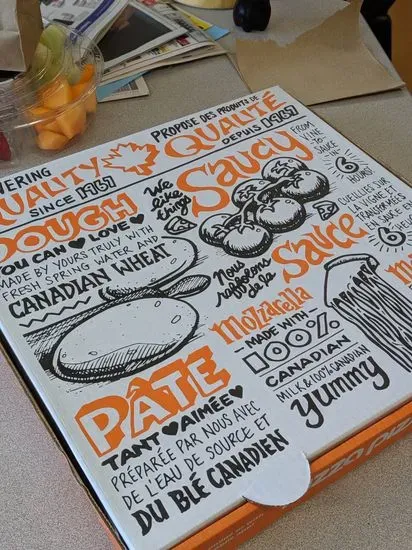 PROPOSE DES PRODUITS DE
QUALITY
SINCE 1967
QUALITÉ
DEPUIS 1967
DOUGH
YOU CAN ♥ LOVE ♥
MADE BY YOURS TRULY WITH
FRESH SPRING WATER AND
CANADIAN WHEAT
We like things
Saucy
FROM
VINE TO
SAUCE IN
6
HOURS!
CUEILLIES SUR
TRANSFORMÉES
EN SAUCE EN
6
Nous raffolons de la
Sauce
Mozzarella
MADE WITH
100%
CANADIAN
MILK & 100% CANADIAN
yummy
PÂTE
TANT ♥ AIMÉE ♥
PRÉPARÉE PAR NOUS AVEC
DE L'EAU DE SOURCE ET
DU BLÉ CANADIEN